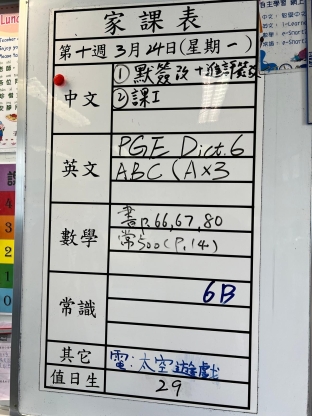 家課表
第十週 3月24日(星期一)
中文
① 默簽改+進評簽改
② 課工
英文
PGE Dict.6
ABC (A×3
數學
書p.66,67,80
常500(P.14)
常識
6B
其它
電:太空遊戲
值日生
29